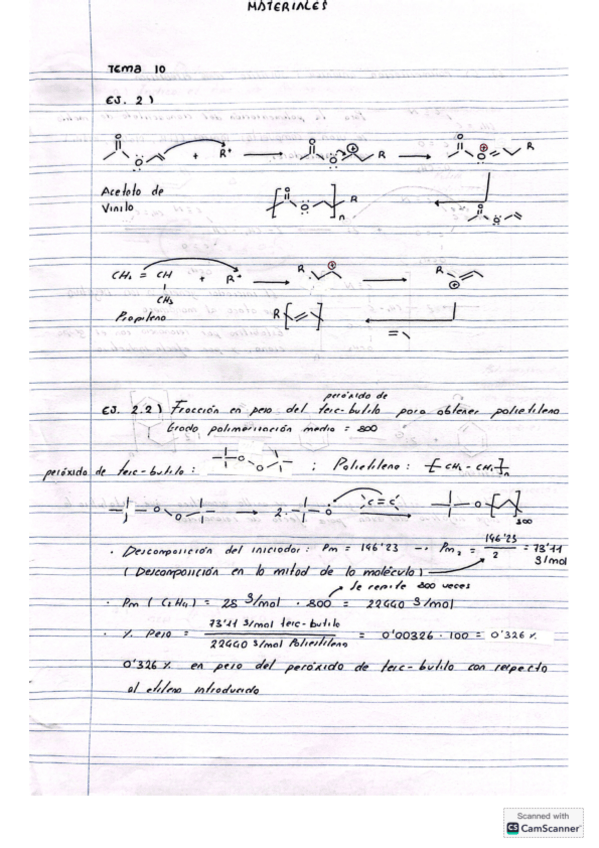 MATERIALES
TEMA 10
EJ. 2)
+ R⁺
R
R
Acetato de
Vinilo
R
n
CH₂ = CH
CH₃
+ R⁺
R
R
Propileno
R
EJ. 2.2) Fracción en peso del terc-butilo para obtener polietileno
peróxido de
Grado polimerización media = 800
peróxido de terc-butilo: ; Polietileno: [CH₂ - CH₂]n
2· 
800
· Descomposición del iniciador: Pm = 146'23 → Pm₂ = 146'23 / 2 = 73'11 g/mol
(Descomposición en la mitad de la molécula)
se repite 800 veces
· Pm (C₂H₄) = 28 g/mol · 800 = 22440 g/mol
· % Peso = 73'11 g/mol terc-butilo / 22440 g/mol Polietileno = 0'00326 · 100 = 0'326 %
0'326 % en peso del peróxido de terc-butilo con respecto
al etileno introducido
Scanned with
CS CamScanner